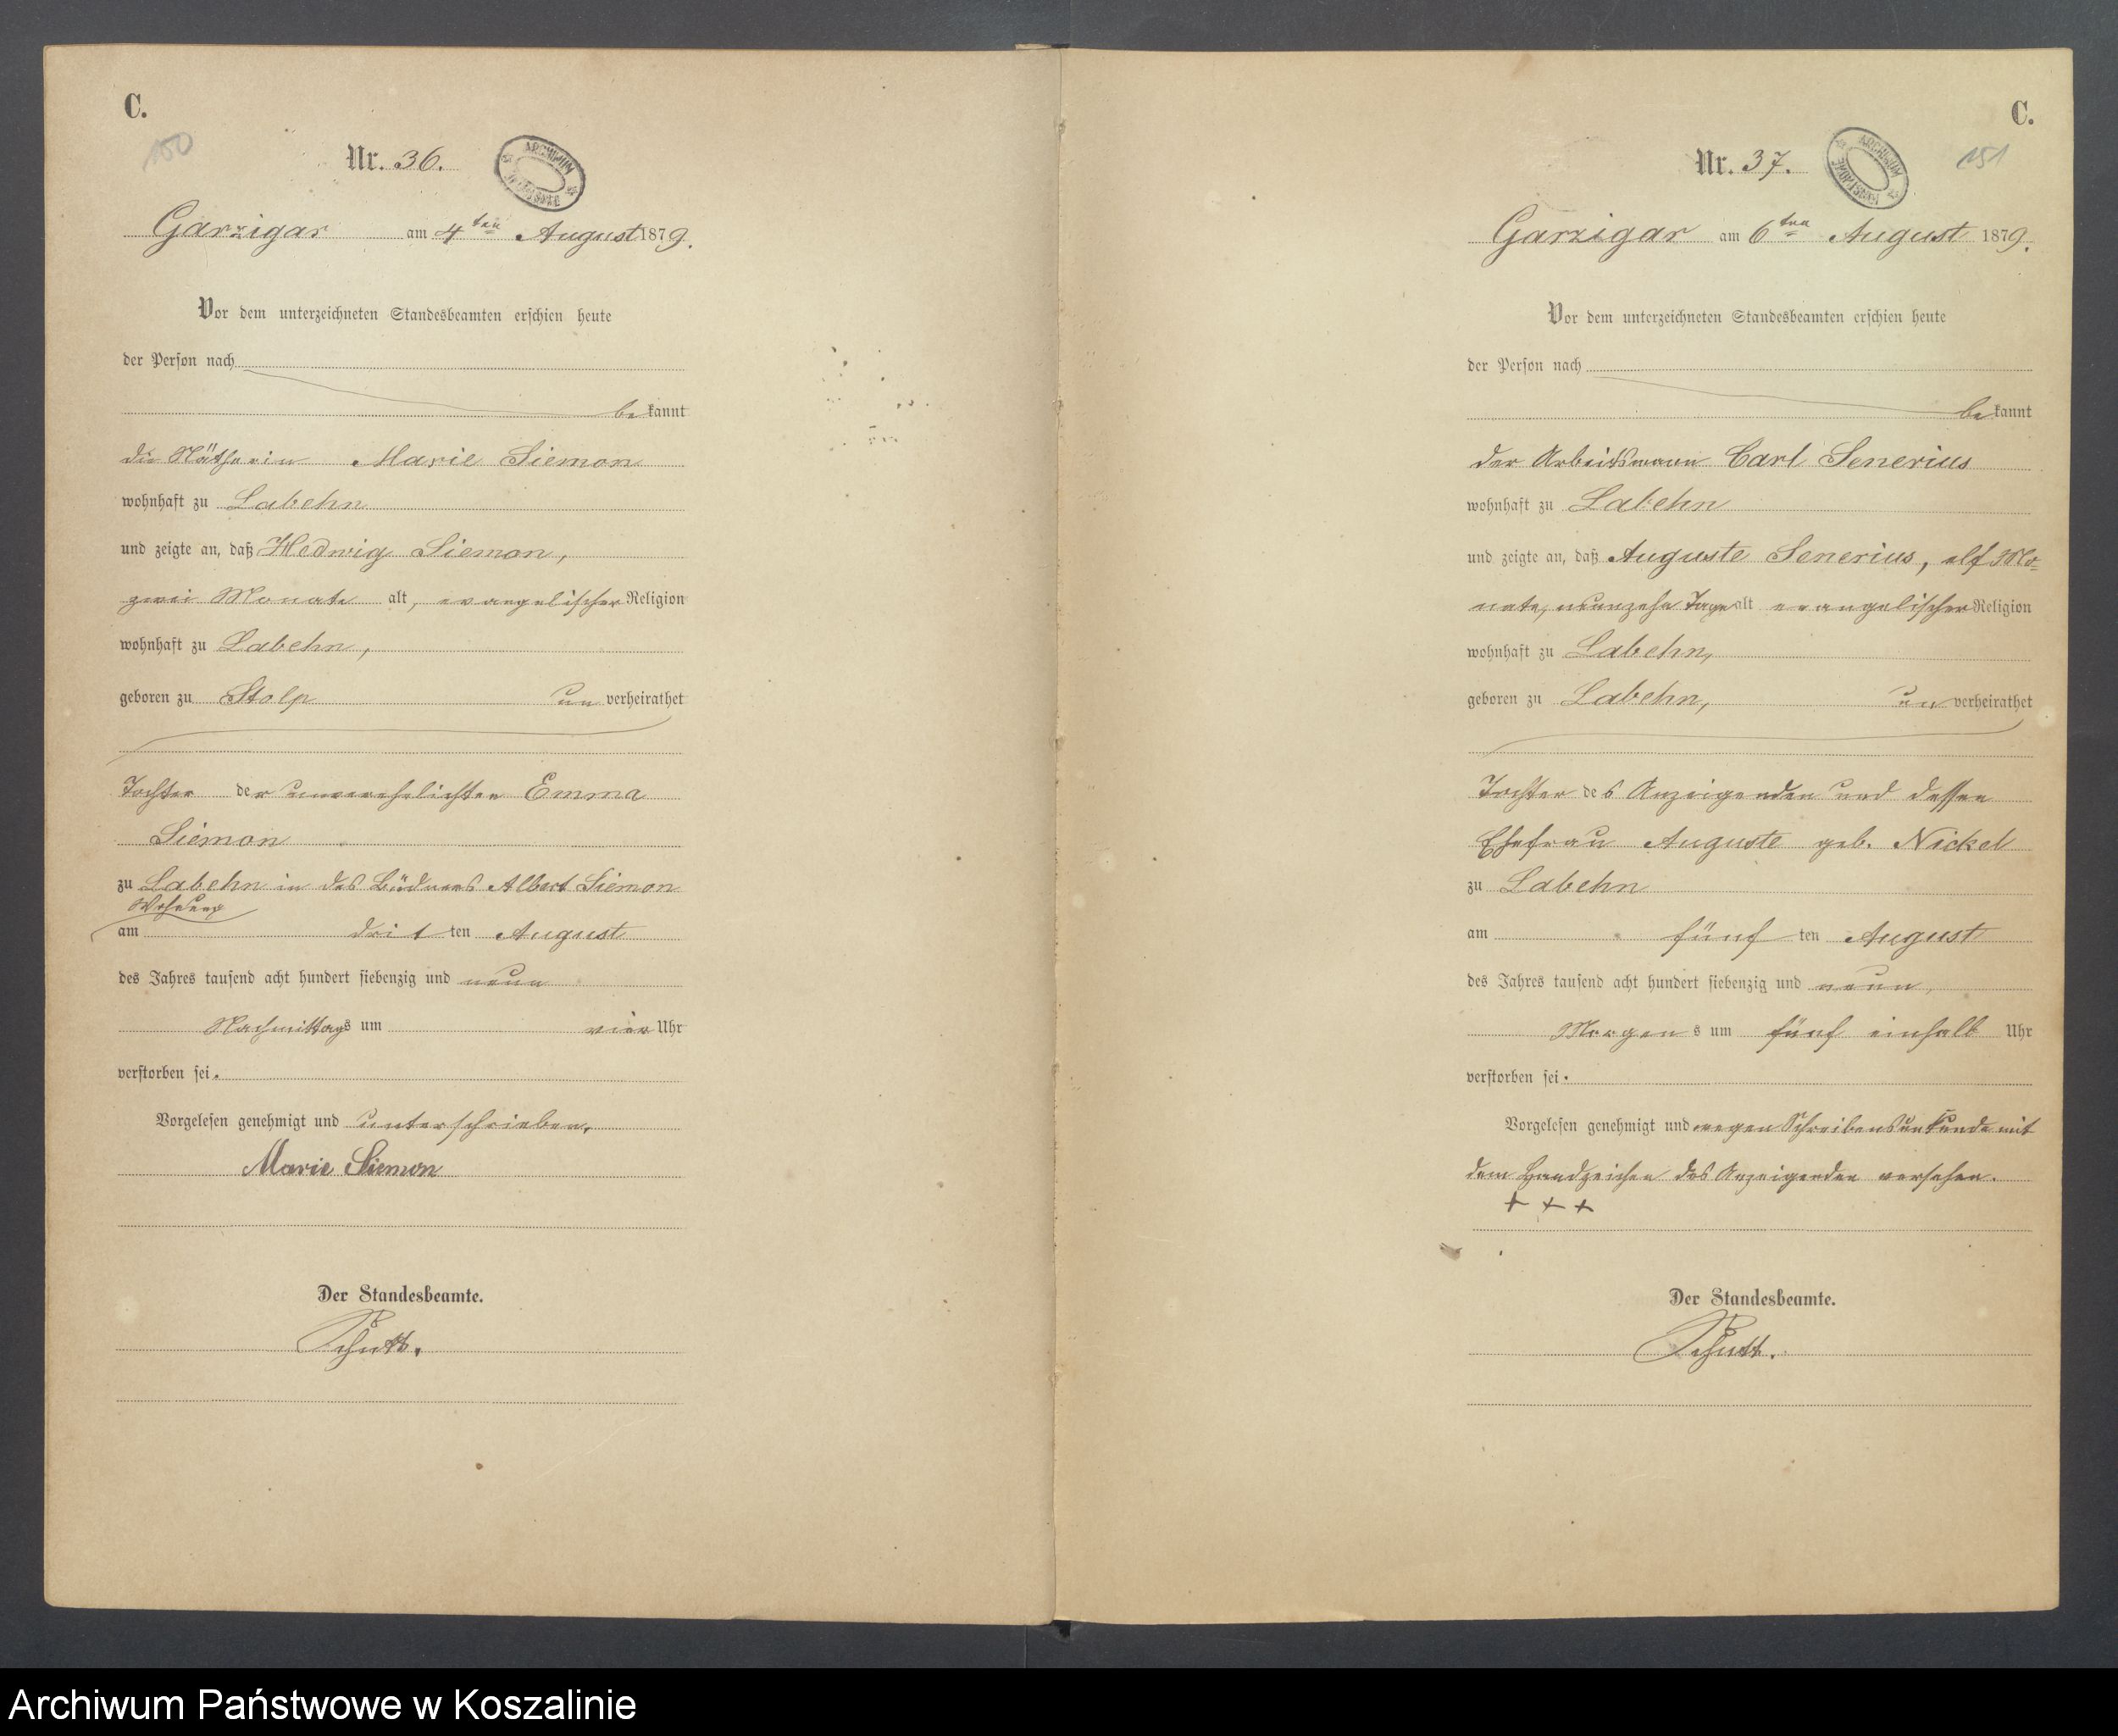 C.
150
Nr. 36.
ARCHIWUM
Garzigar am 4ten August 1879.
Vor dem unterzeichneten Standesbeamten erschien heute
der Person nach
bekannt
die Nätherin Marie Siemon
wohnhaft zu Labehn
und zeigte an, daß Hedwig Siemon,
zwei Monate alt, evangelischer Religion
wohnhaft zu Labehn,
geboren zu Stolp unverheirathet
Tochter der unverehelichten Emma
Siemon
zu Labehn in des Büdners Albert Siemon
Wohnung
am dritten August
des Jahres tausend acht hundert siebenzig und neun
Nachmittags um vier Uhr
verstorben sei.
Vorgelesen genehmigt und unterschrieben.
Marie Siemon
Der Standesbeamte.
Schutt.
C.
151
Nr. 37.
ARCHIWUM
Garzigar am 6ten August 1879.
Vor dem unterzeichneten Standesbeamten erschien heute
der Person nach
bekannt
der Arbeitsmann Carl Senerius
wohnhaft zu Labehn
und zeigte an, daß Auguste Senerius, elf Mo-
nate, neunzehn Tage alt evangelischer Religion
wohnhaft zu Labehn,
geboren zu Labehn, unverheirathet
Tochter des Anzeigenden und dessen
Ehefrau Auguste geb. Nickel
zu Labehn
am fünften August
des Jahres tausend acht hundert siebenzig und neun,
Morgens um fünf einhalb Uhr
verstorben sei.
Vorgelesen genehmigt und wegen Schreibensunkunde mit
dem Handzeichen des Anzeigenden versehen.
+ + +
Der Standesbeamte.
Schutt.
Archiwum Państwowe w Koszalinie